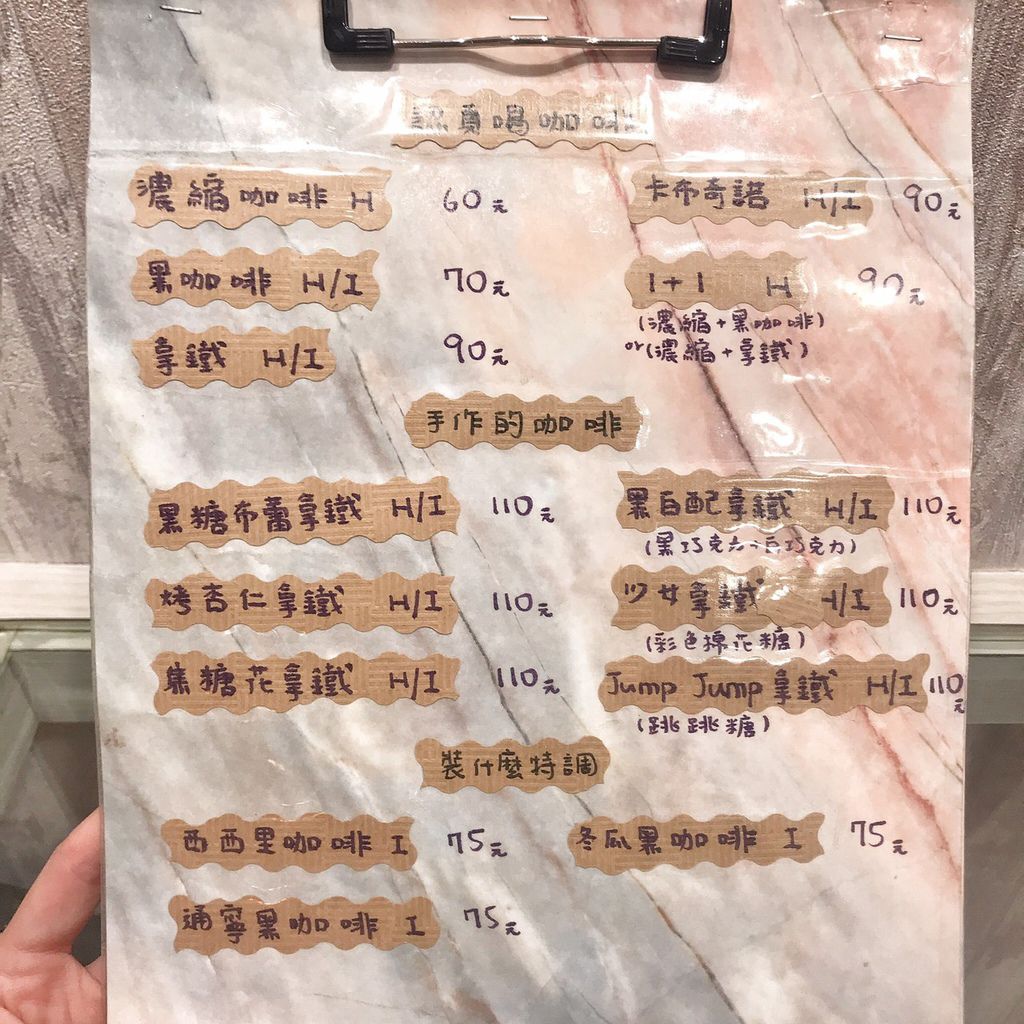 認真喝咖啡
濃縮咖啡 H 60元
卡布奇諾 H/I 90元
黑咖啡 H/I 70元
1+1 H 90元
(濃縮+黑咖啡)
or(濃縮+拿鐵)
拿鐵 H/I 90元
手作的咖啡
黑糖布蕾拿鐵 H/I 110元
黑白配拿鐵 H/I 110元
(黑巧克力+白巧克力)
烤杏仁拿鐵 H/I 110元
少女拿鐵 H/I 110元
(彩色棉花糖)
焦糖花拿鐵 H/I 110元
Jump Jump 拿鐵 H/I 110元
(跳跳糖)
裝什麼特調
西西里咖啡 I 75元
冬瓜黑咖啡 I 75元
通寧黑咖啡 I 75元